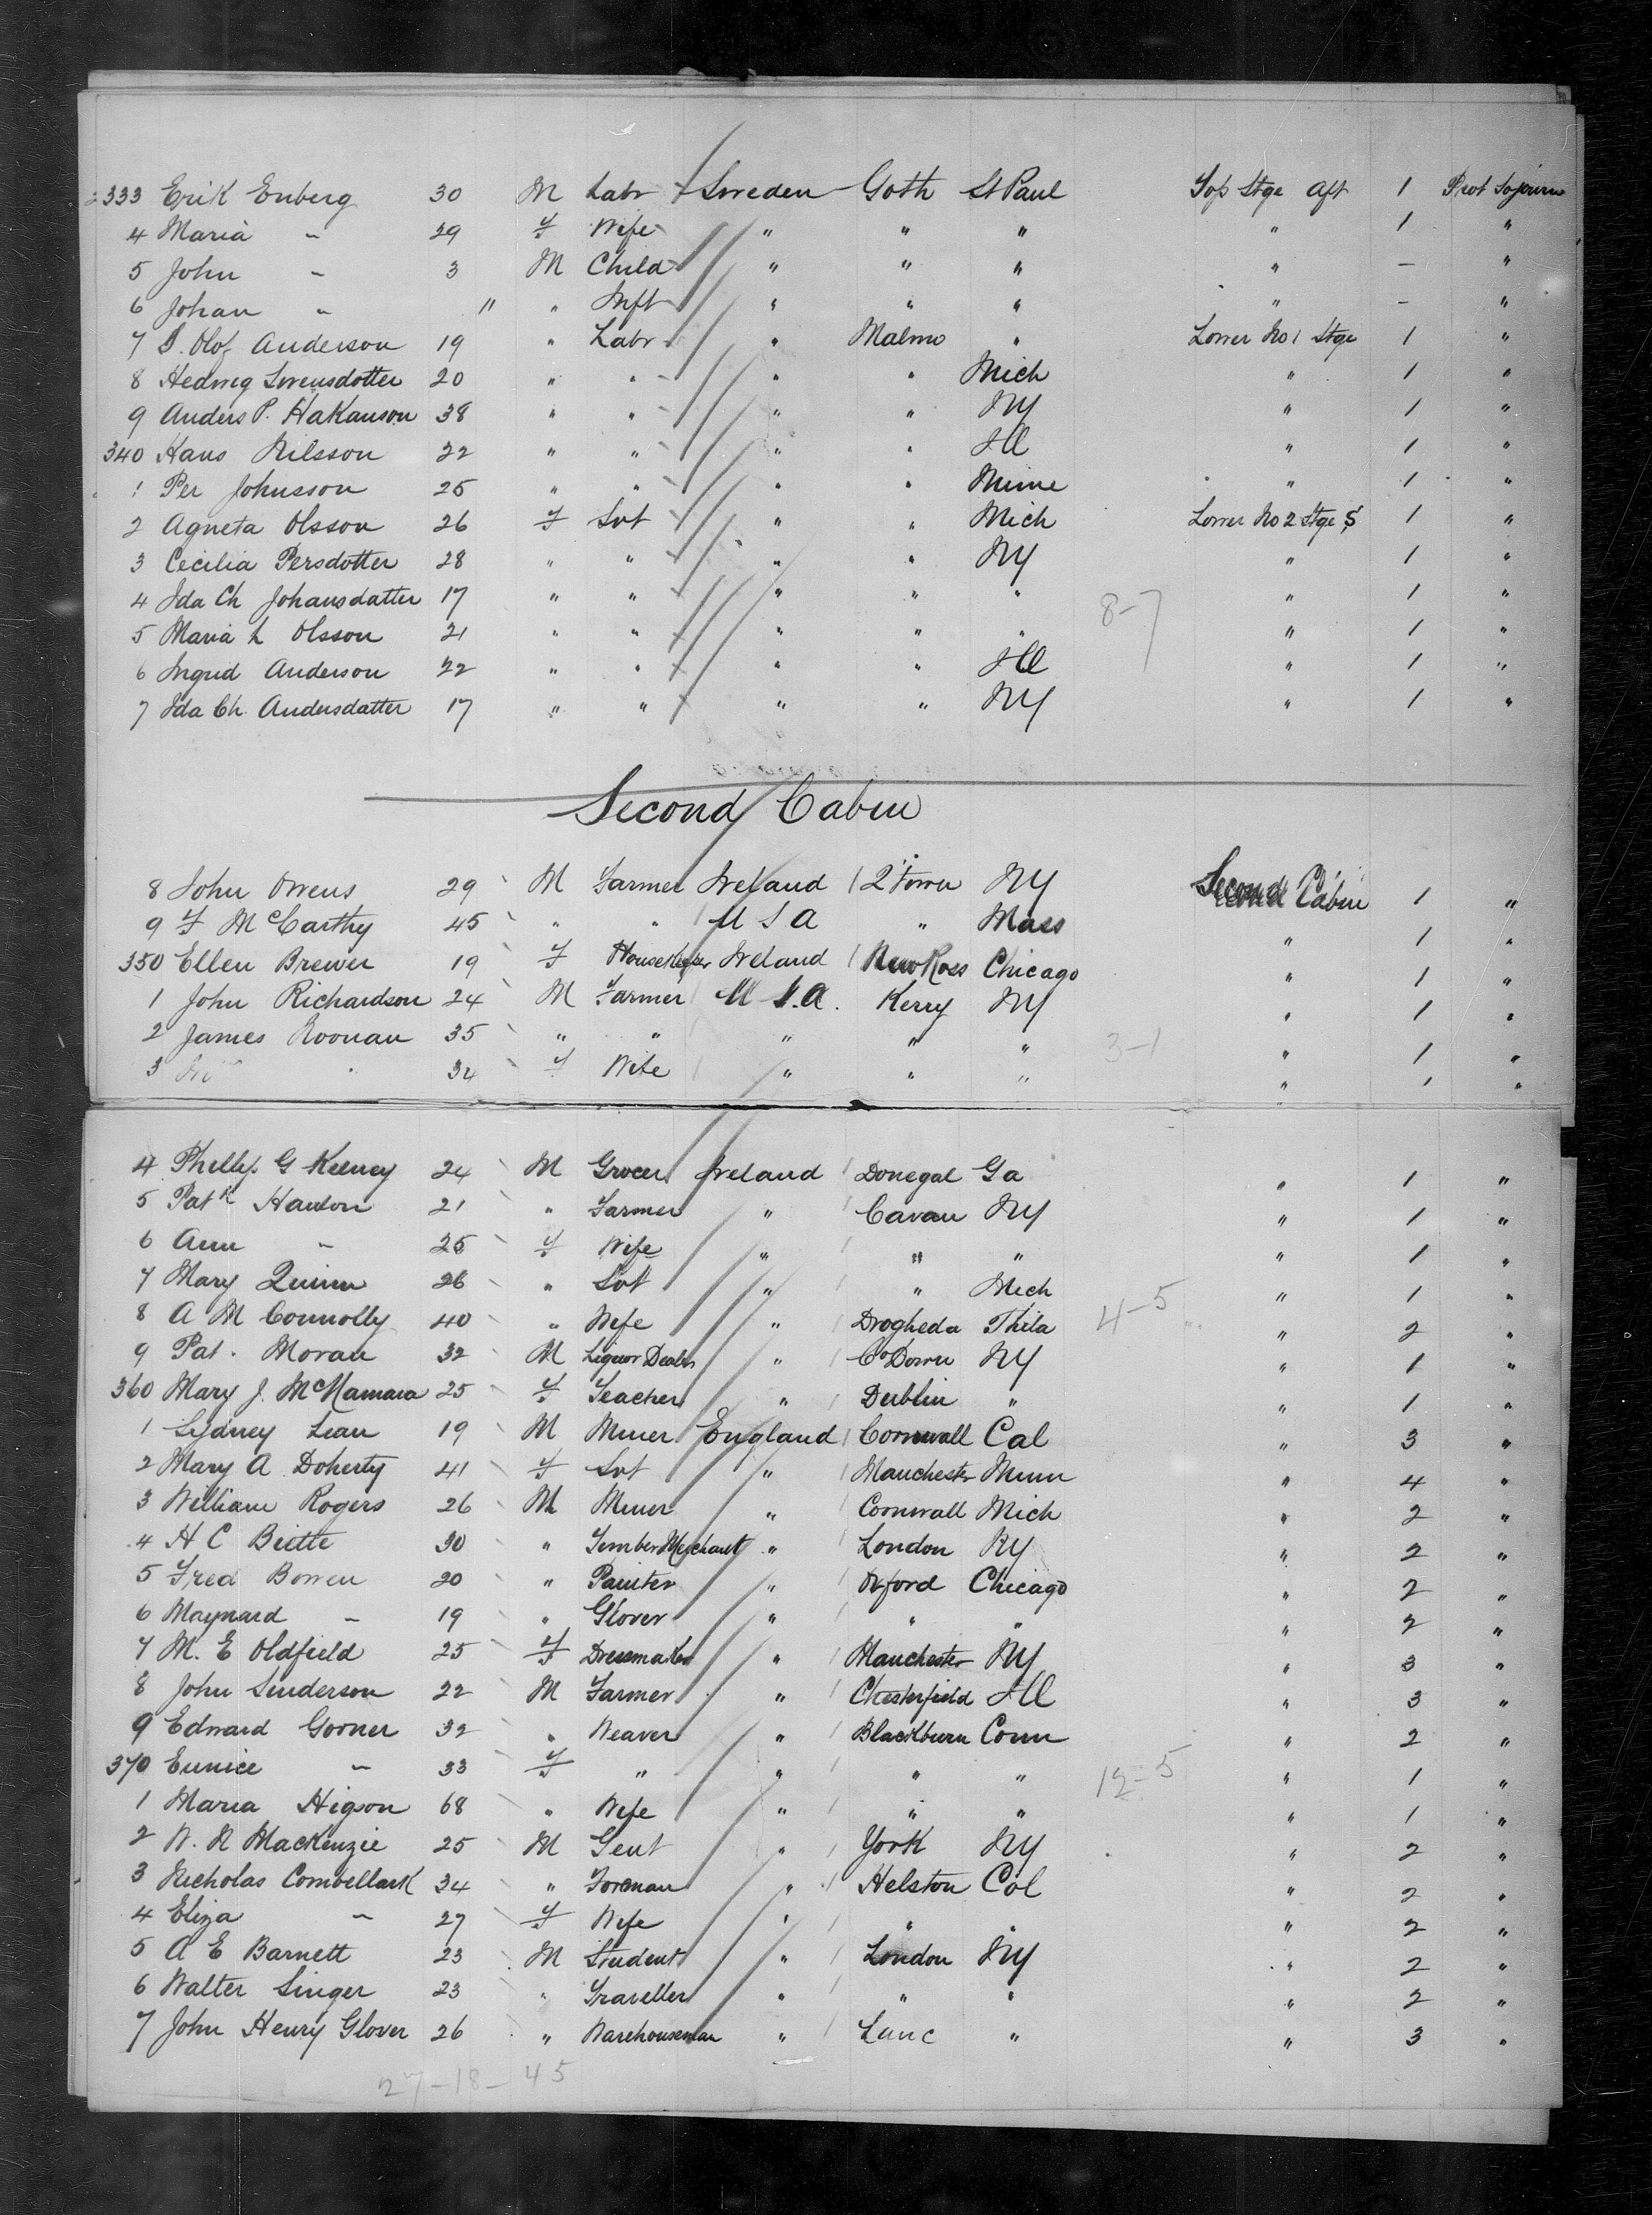 333 Erik Enberg 30 M Labr Sweden Goth St Paul Top Stge Aft 1 Prot Sojourn
4 Maria " 29 F Wife " " " " 1 "
5 John " 3 M Child " " " " - "
6 Johan " " " Inft " " " " - "
7 S. Olof Anderson 19 " Labr " Malmo " Lower No 1 Stge 1 "
8 Hedwig Svensdotter 20 " " " " Mich " 1 "
9 Anders P. Hakanson 38 " " " " NY " 1 "
340 Hans Nilsson 22 " " " " Ill " 1 "
1 Per Johnsson 25 " " " " Minne " 1 "
2 Agneta Olsson 26 F Svt " " Mich Lower No 2 Stge S 1 "
3 Cecilia Persdotter 28 " " " " NY " 1 "
4 Ida Ch Johansdatter 17 " " " " " 8-7 " 1 "
5 Maria L Olsson 21 " " " " " " 1 "
6 Ingrid Anderson 22 " " " " Ill " 1 "
7 Ida Ch. Andersdatter 17 " " " " NY " 1 "
Second Cabin
8 John Owens 29 M Farmer Ireland Q Town NY Second Cabin 1 "
9 F McCarthy 45 " " U S A " Mass " 1 "
350 Ellen Brewer 19 F Housekeeper Ireland New Ross Chicago " 1 "
1 John Richardson 24 M Farmer U.S.A. Kerry NY " 1 "
2 James Noonan 35 " " " " " 3-1 " 1 "
3 " 34 F Wife " " " " 1 "
4 Phillip G Keeney 24 M Grocer Ireland Donegal Ga " 1 "
5 Patk Hanlon 21 " Farmer " Cavan NY " 1 "
6 Ann " 25 F Wife " " " " 1 "
7 Mary Quinn 26 " Svt " " Mich " 1 "
8 A M Connolly 40 " Wife " Drogheda Phila 4-5 " 2 "
9 Pat. Moran 32 M Liquor Dealer " Co Down NY " 1 "
360 Mary J. McNamara 25 F Teacher " Dublin " " 1 "
1 Sydney Lean 19 M Miner England Cornwall Cal " 3 "
2 Mary A Doherty 41 F Svt " Manchester Minn " 4 "
3 William Rogers 26 M Miner " Cornwall Mich " 2 "
4 H C 30 " Timber Merchant " London NY " 2 "
5 Fred Bowen 20 " Painter " Oxford Chicago " 2 "
6 Maynard " 19 " Glover " " " " 2 "
7 M. E Oldfield 25 F Dressmaker " Manchester NY " 3 "
8 John Sinderson 22 M Farmer " Chesterfield Ill " 3 "
9 Edward Gorner 32 " Weaver " Blackburn Conn " 2 "
370 Eunice " 33 F " " " " 12-5 " 1 "
1 Maria Higson 68 " Wife " " " " 1 "
2 W. N Mackenzie 25 M Gent " York NY " 2 "
3 Nicholas Combellack 34 " Foreman " Helston Col " 2 "
4 Eliza " 27 F Wife " " " " 2 "
5 A E Barnett 23 M Student " London NY " 2 "
6 Walter Singer 23 " Traveller " " " " 2 "
7 John Henry Glover 26 " Warehouseman " Lanc " " 3 "
27-18-45